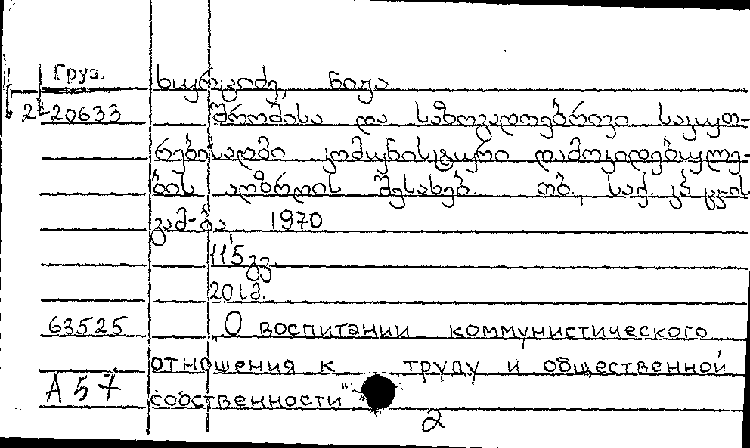 Груз.
ხურციძე, ნიჟა
2-20633 შრომისა და საზოგადოებრივი საკუთ-
რებისადმი კომუნისტური დამოკიდებულე-
ბის აღზრდის შესახებ. თბ., საქ. კპ ცკ-ის
გამ-ბა 1970
115გვ.
20სმ.
63525 "О воспитании коммунистического
отношения к труду и общественной
А57 собственности"
2